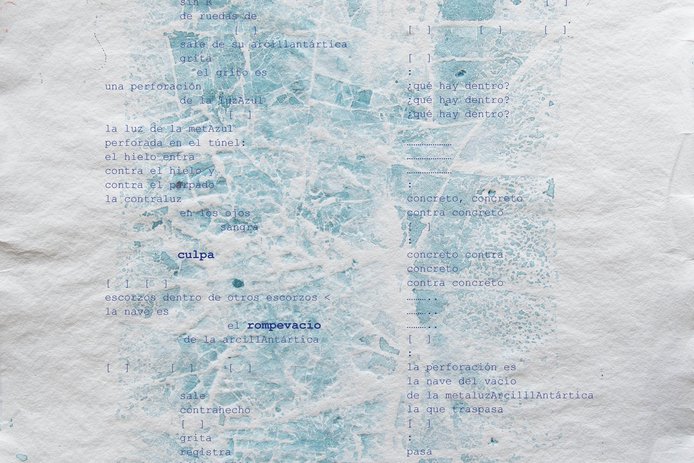 sin R
de ruedas de
[ ]
sale de su arcillantártica
grita
el grito es
una perforación
de la luzAzul
[ ]
la luz de la metAzul
perforada en el túnel:
el hielo entra
contra el hielo y
contra el párpado
la contraluz
en los ojos
sangra
culpa
[ ] [ ]
escorzos dentro de otros escorzos <
la nave es
el rompevacío
de la arcillAntártica
[ ] [ ] [ ]
sale
contrahecho
[ ]
grita
registra
[ ] [ ] [ ]
[ ]
:
¿qué hay dentro?
¿qué hay dentro?
¿qué hay dentro?
:
concreto, concreto
contra concreto
[ ]
:
concreto contra
concreto
contra concreto
[ ]
:
la perforación es
la nave del vacío
de la metaluzArcilllAntártica
la que traspasa
[ ]
:
pasa